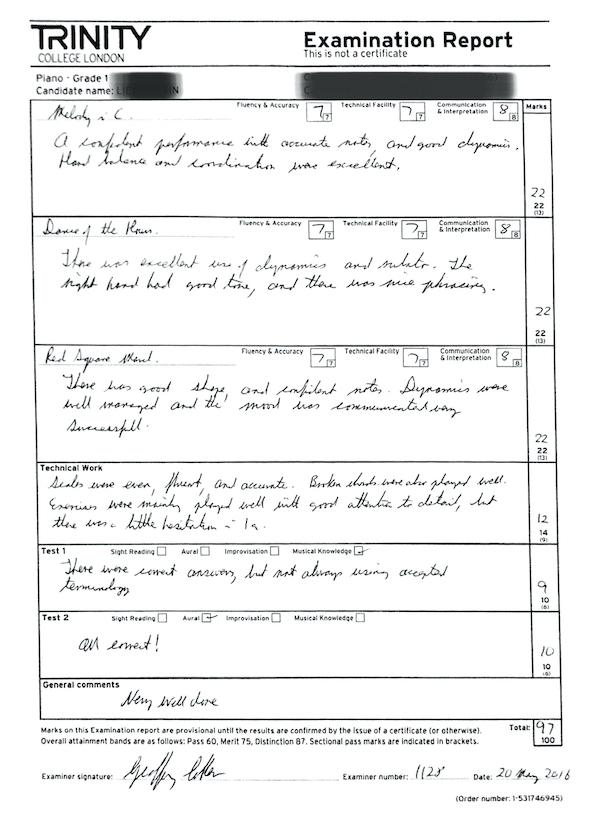 TRINITY
COLLEGE LONDON
Examination Report
This is not a certificate
Piano - Grade 1
Candidate name:
Melody in C. Fluency & Accuracy 7 7 Technical Facility 7 7 Communication & Interpretation 8 8 Marks
A confident performance with accurate notes, and good dynamics.
Hand balance and coordination were excellent.
22
22
(13)
Dance of the Hours. Fluency & Accuracy 7 7 Technical Facility 7 7 Communication & Interpretation 8 8
There was excellent use of dynamics and rubato. The
right hand had good tone, and there was nice phrasing.
22
22
(13)
Red Square March. Fluency & Accuracy 7 7 Technical Facility 7 7 Communication & Interpretation 8 8
There was good shape, and confident notes. Dynamics were
well managed and the mood was communicated very
successfully.
22
22
(13)
Technical Work
Scales were even, fluent, and accurate. Broken chords were also played well.
Exercises were mainly played well with good attention to detail, but
there was a little hesitation in 1a.
12
14
(9)
Test 1 Sight Reading Aural Improvisation Musical Knowledge
There were correct answers, but not always using accepted
terminology
9
10
(6)
Test 2 Sight Reading Aural Improvisation Musical Knowledge
All correct!
10
10
(6)
General comments
Very well done
Marks on this Examination report are provisional until the results are confirmed by the issue of a certificate (or otherwise).
Overall attainment bands are as follows: Pass 60, Merit 75, Distinction 87. Sectional pass marks are indicated in brackets.
Total: 97
100
Examiner signature: Examiner number: 1128 Date: 20 May 2016
(Order number: 1-531746945)